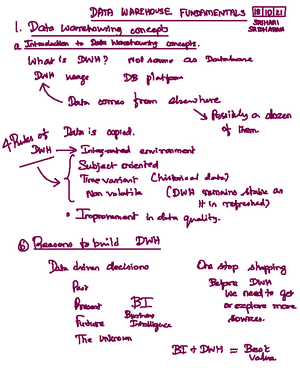 DATA WAREHOUSE FUNDAMENTALS 18|10|21
SRIHARI
SRIDHARAN
1. Data warehousing concepts
a. Introduction to Data Warehousing concepts.
What is DWH? Not same as Database
DWH usage DB platform
Data comes from elsewhere
Possibly a dozen of them.
4 Rules of DWH
Data is copied.
Integrated environment
Subject oriented
Time variant (historical data)
Non volatile (DWH remains stable as it is refreshed)
Improvement in data quality.
⑥ Reasons to build DWH
Data driven decisions One stop shopping
Past
Present
Future
The Unknown
BI
Business
Intelligence
Before DWH
We need to get
or explore more
sources.
BI + DWH = Best Value